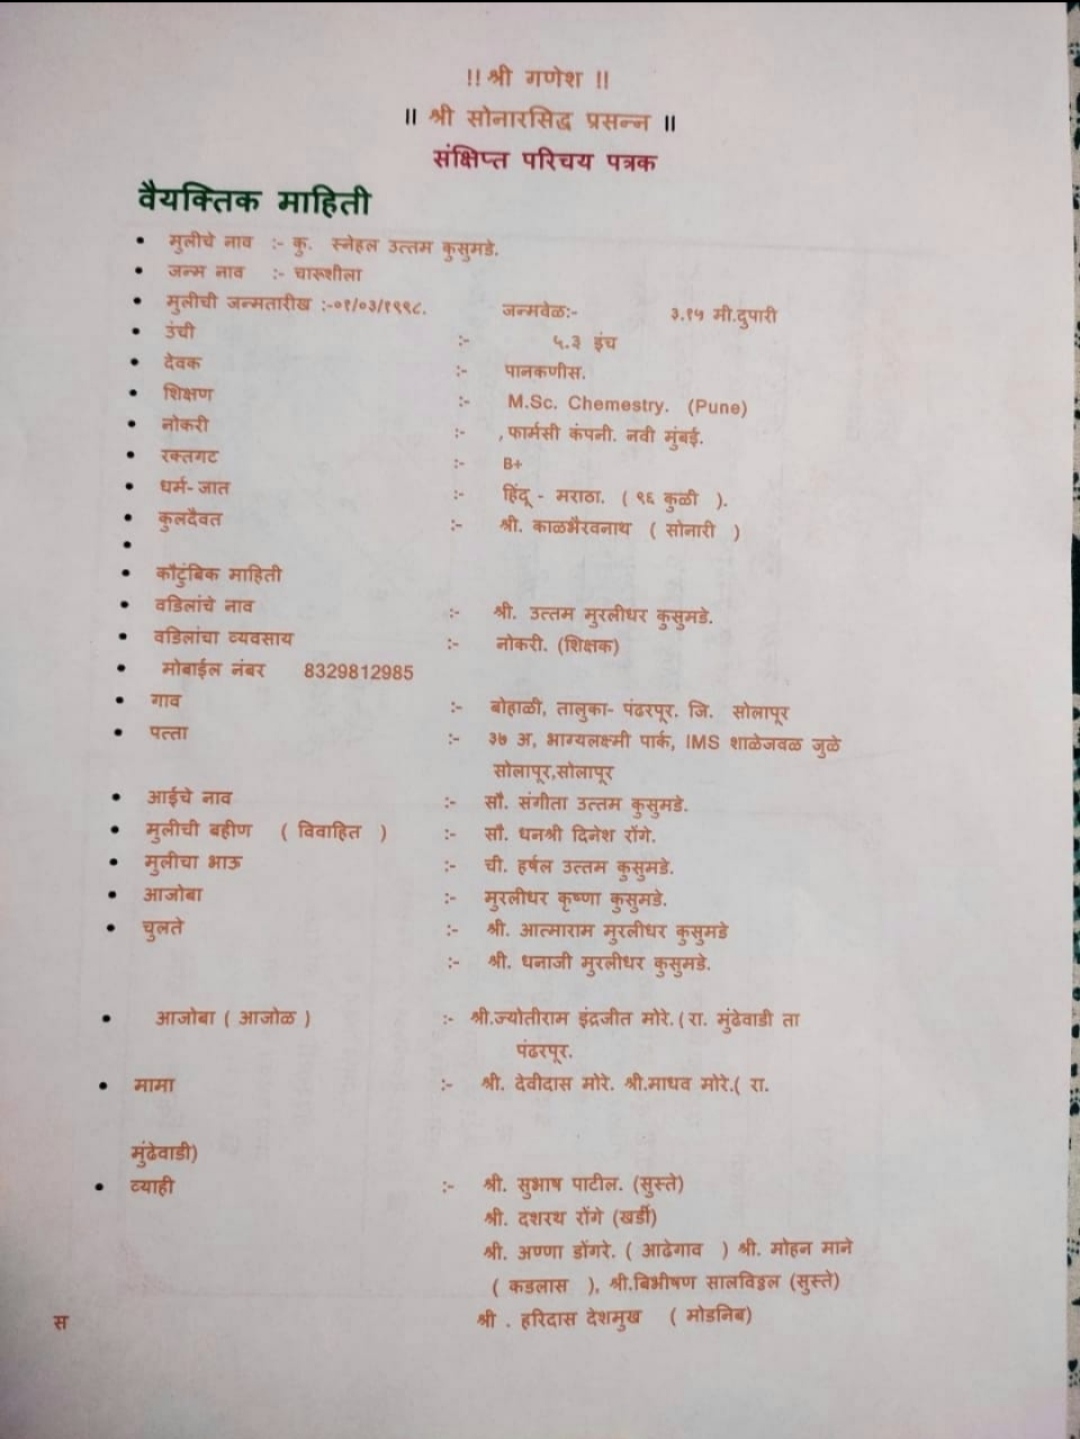 !! श्री गणेश !!
॥ श्री सोनारसिद्ध प्रसन्न ॥
संक्षिप्त परिचय पत्रक
वैयक्तिक माहिती
• मुलीचे नाव :- कु. स्नेहल उत्तम कुसुमडे.
• जन्म नाव :- चारूशीला
• मुलीची जन्मतारीख :-०१/०३/१९९८. जन्मवेळ:- ३.१५ मी.दुपारी
• उंची :- ५.३ इंच
• देवक :- पानकणीस.
• शिक्षण :- M.Sc. Chemestry. (Pune)
• नोकरी :- ,फार्मसी कंपनी. नवी मुंबई.
• रक्तगट :- B+
• धर्म- जात :- हिंदू - मराठा. ( ९६ कुळी ).
• कुलदैवत :- श्री. काळभैरवनाथ ( सोनारी )
•
• कौटुंबिक माहिती
• वडिलांचे नाव :- श्री. उत्तम मुरलीधर कुसुमडे.
• वडिलांचा व्यवसाय :- नोकरी. (शिक्षक)
• मोबाईल नंबर 8329812985
• गाव :- बोहाळी, तालुका- पंढरपूर. जि. सोलापूर
• पत्ता :- ३७ अ, भाग्यलक्ष्मी पार्क, IMS शाळेजवळ जुळे
सोलापूर,सोलापूर
• आईचे नाव :- सौ. संगीता उत्तम कुसुमडे.
• मुलीची बहीण ( विवाहित ) :- सौ. धनश्री दिनेश रोंगे.
• मुलीचा भाऊ :- ची. हर्षल उत्तम कुसुमडे.
• आजोबा :- मुरलीधर कृष्णा कुसुमडे.
• चुलते :- श्री. आत्माराम मुरलीधर कुसुमडे
:- श्री. धनाजी मुरलीधर कुसुमडे.
• आजोबा ( आजोळ ) :- श्री.ज्योतीराम इंद्रजीत मोरे.( रा. मुंढेवाडी ता
पंढरपूर.
• मामा :- श्री. देवीदास मोरे. श्री.माधव मोरे.( रा.
मुंढेवाडी)
• व्याही :- श्री. सुभाष पाटील. (सुस्ते)
श्री. दशरथ रोंगे (खर्डी)
श्री. अण्णा डोंगरे. ( आढेगाव ) श्री. मोहन माने
( कडलास ), श्री.बिभीषण सालविठ्ठल (सुस्ते)
स श्री . हरिदास देशमुख ( मोडनिब)